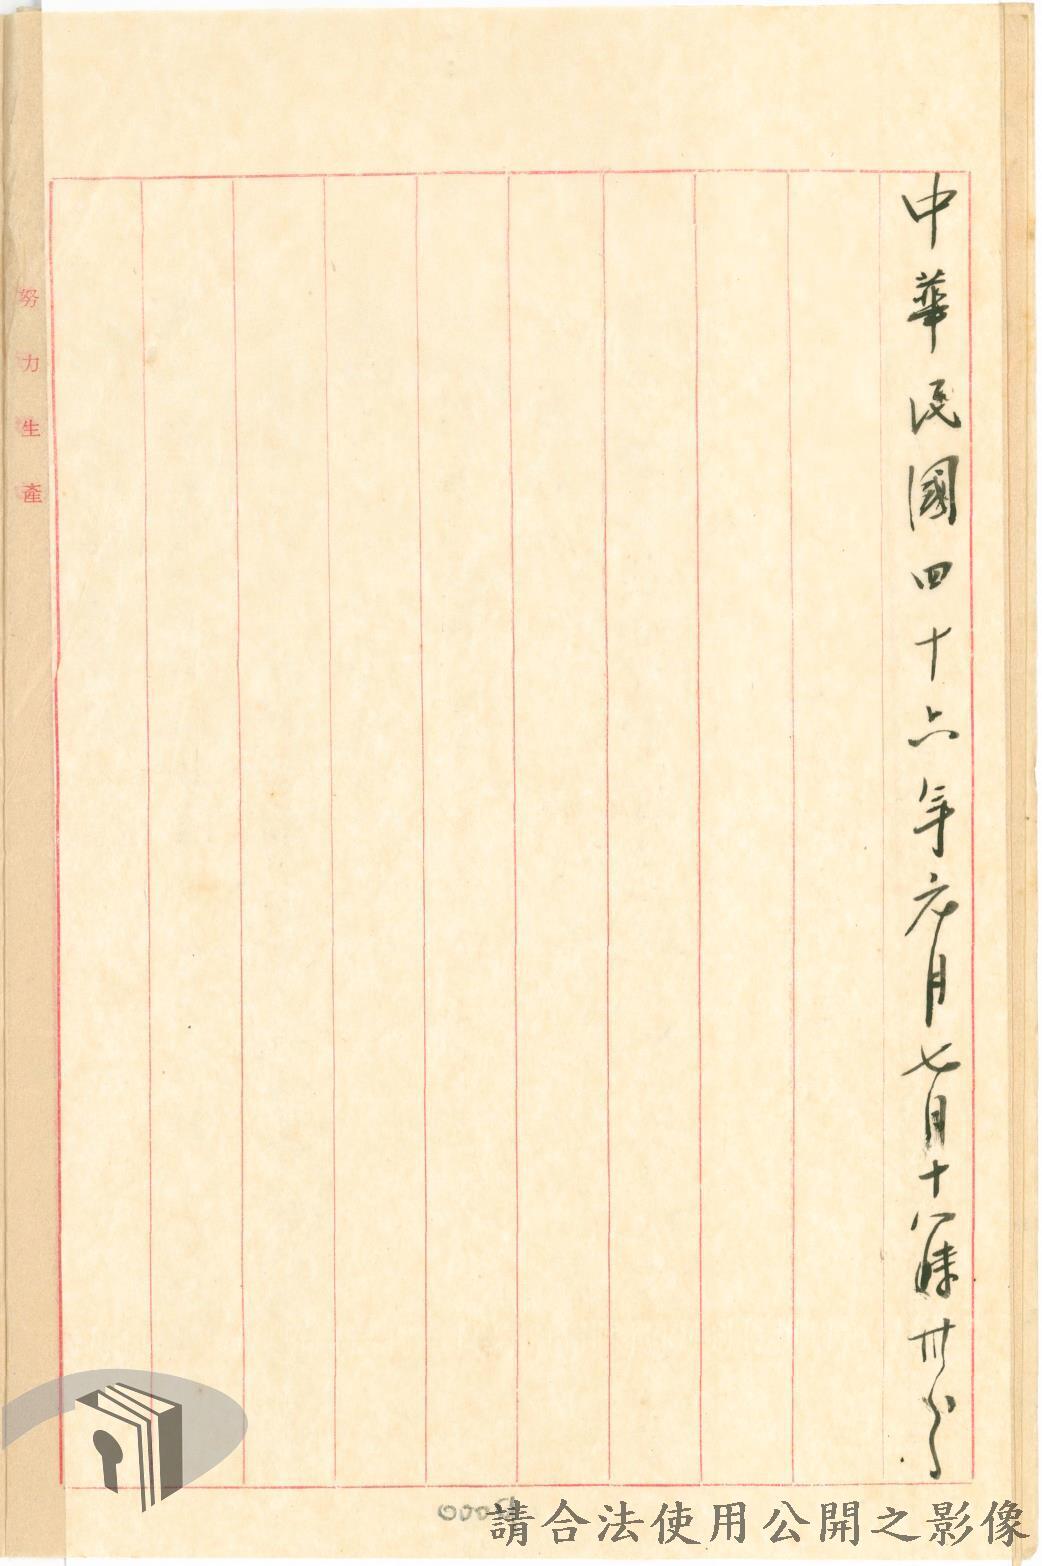 中華民國四十六年六月七日十八時卅分
努力生產
請合法使用公開之影像